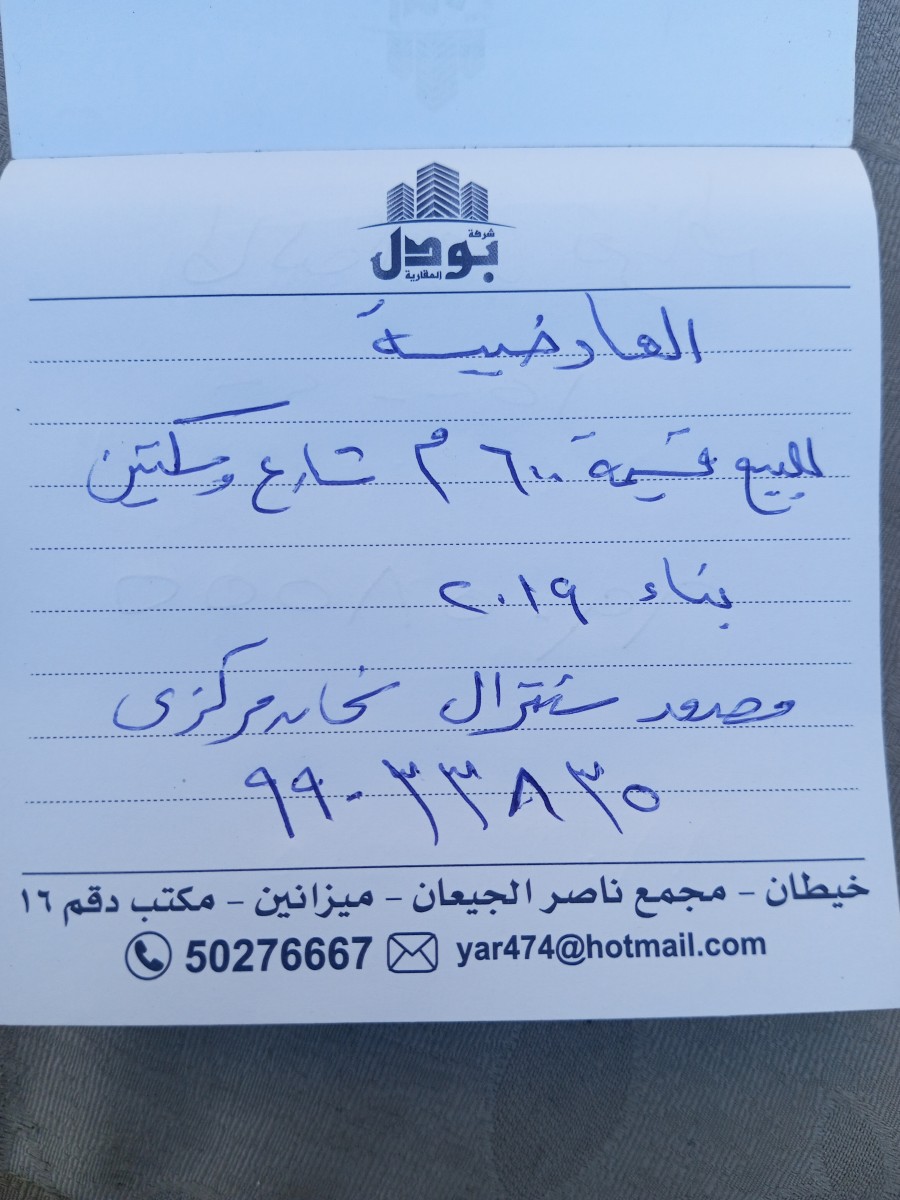 شركة
بودل
العقارية
العارضية
للبيع قسيمة ٦٠٠ م شارع وسكتين
بناء ٢٠١٩
مصعد سنترال نحاس مركزي
٩٩٠٣٣٨٣٥
خيطان – مجمع ناصر الجيعان – ميزانين – مكتب دقم ١٦
50276667 yar474@hotmail.com